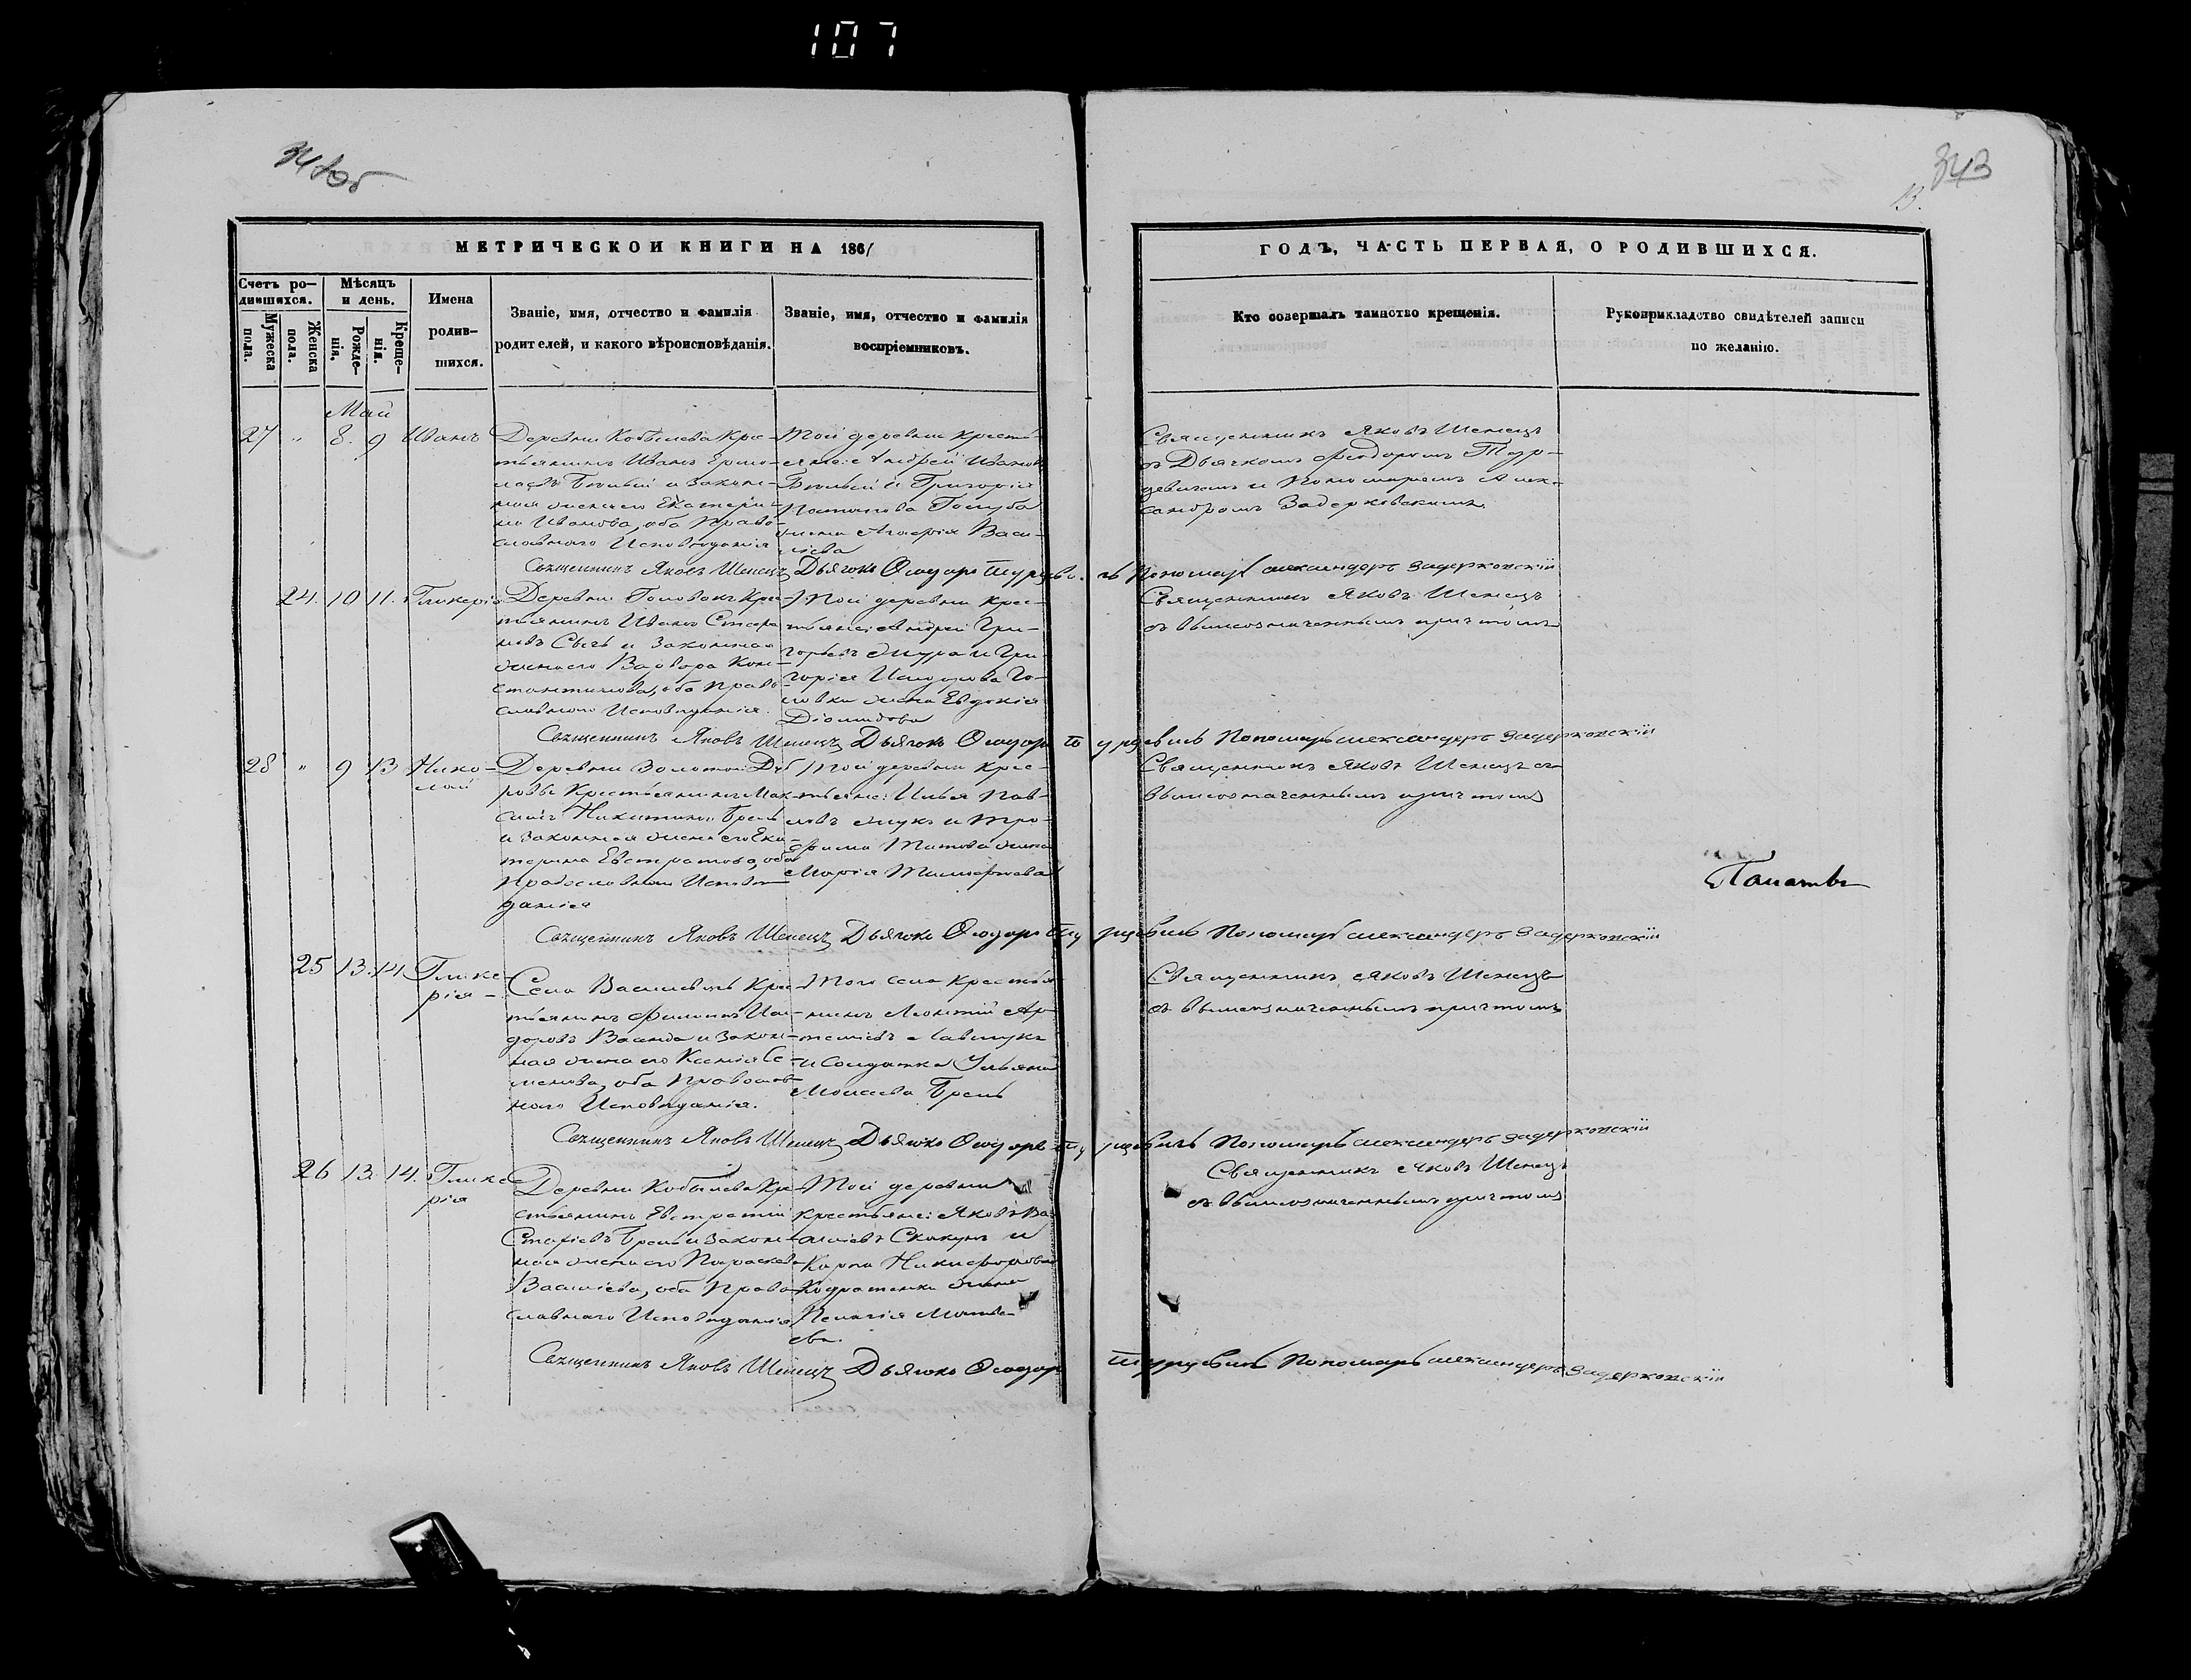 107
343
13.
МЕТРИЧЕСКОЙ КНИГИ НА 1861
Счетъ ро-
дившихся.
Мужеска
пола.
Женска
пола.
Мѣсяцъ
и день.
Рожде-
нія.
Креще-
нія.
Имена
родив-
шихся.
Званіе, имя, отчество и фамилія
родителей, и какого вѣроисповѣданія.
Званіе, имя, отчество и фамилія
воспріемниковъ.
ГОДЪ, ЧАСТЬ ПЕРВАЯ, О РОДИВШИХСЯ.
Кто совершалъ таинство крещенія.
Рукоприкладство свидѣтелей записи
по желанію.
Май
27 " 8. 9 Иванъ
Деревни Кобылева Кре-
стьянинъ Иванъ Ермо-
и Закон-
ная жена его Екатери-
на Иванова, оба Право-
славнаго Исповѣданія
Той деревни кресть-
яне: Андрей Ивановъ
и Григорія
Потапова Голуба
жена Агафія Васи-
ліева
Священникъ Яковъ Шенецъ
съ Дьячкомъ Феодоромъ Тур-
цевичемъ и Пономаремъ Алек-
сандромъ Задерковскимъ
Священникъ Яковъ Шенецъ Дьячокъ Феодоръ Турцевичъ Пономарь Александеръ Задерковскій
24. 10 11. Гликерія
Деревни Головокъ Кре-
стьянинъ Иванъ
и Законная
жена его Варвара Кон-
стантинова, оба Право-
славнаго Исповѣданія.
Той деревни крес-
тьяне: Андрей Гри-
горьевъ и Гри-
горія Го-
ловки жена Евдокія
Діомидова
Священникъ Яковъ Шенецъ
съ вышеозначеннымъ причтомъ
Священникъ Яковъ Шенецъ Дьячокъ Феодоръ Турцевичъ Пономарь Александеръ Задерковскій
28 " 9 13 Нико-
лай
Деревни Золотой Дуб
ровы Крестьянинъ Мак-
симъ Никитинъ Грень
и Законная жена его Ека
терина Евстратова, оба
Православнаго Исповѣ
данія
Той деревни крес-
тьяне: Илья Пав-
ловъ и Тро-
фима Титова жена
Марія
Священникъ Яковъ Шенецъ съ
вышеозначеннымъ причтомъ
Священникъ Яковъ Шенецъ Дьячокъ Феодоръ Турцевичъ Пономарь Александеръ Задерковскій
25 13. 14. Глике-
рія
Села Василевичъ Кре-
стьянинъ Филипъ Иси-
доровъ и Закон-
ная жена его Ксенія Се-
менова, оба Православ-
наго Исповѣданія.
Того села Крестья-
нинъ Леонтій Ар-
теміевъ
и Солдатка Ульяна
Моисеева Грень
Священникъ Яковъ Шенецъ
съ вышеозначеннымъ причтомъ
Священникъ Яковъ Шенецъ Дьячокъ Феодоръ Турцевичъ Пономарь Александеръ Задерковскій
26 13. 14. Глике
рія
Деревни Кобылева Кре
стьянинъ Евстратій
и Закон-
ная жена его Параскева
Василіева, оба Право-
славнаго Исповѣданія
Той деревни
крестьяне: Яковъ Ва-
силіевъ Скакунъ и
Карпа Никифорова
Кодратенки жена
Пелагія Матвѣ-
ева.
Священникъ Яковъ Шенецъ
съ вышеозначеннымъ причтомъ
Священникъ Яковъ Шенецъ Дьячокъ Феодоръ Турцевичъ Пономарь Александеръ Задерковскій